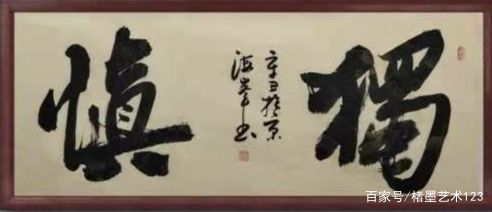 慎獨
辛丑於京
海峰书
百家号/楮墨艺术123